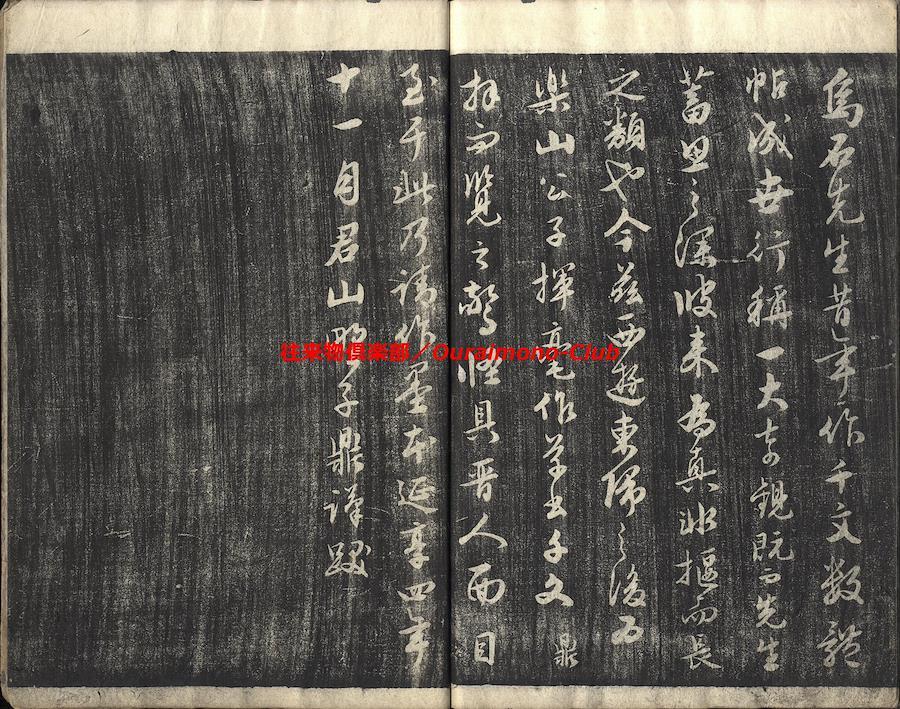 烏石先生昔年作千文数體
帖成世行稱一大奇観既而先生
蓄思之深彼来為真非揠而長
之類也今茲西遊東帰之後為
樂山公子揮毫作草書千文 鼎
拝而覧之驚怪具晋人面目
至于此乃請作墨本延享四年
十一月君山野子鼎謹跋
往来物倶楽部／Ouraimono-Club